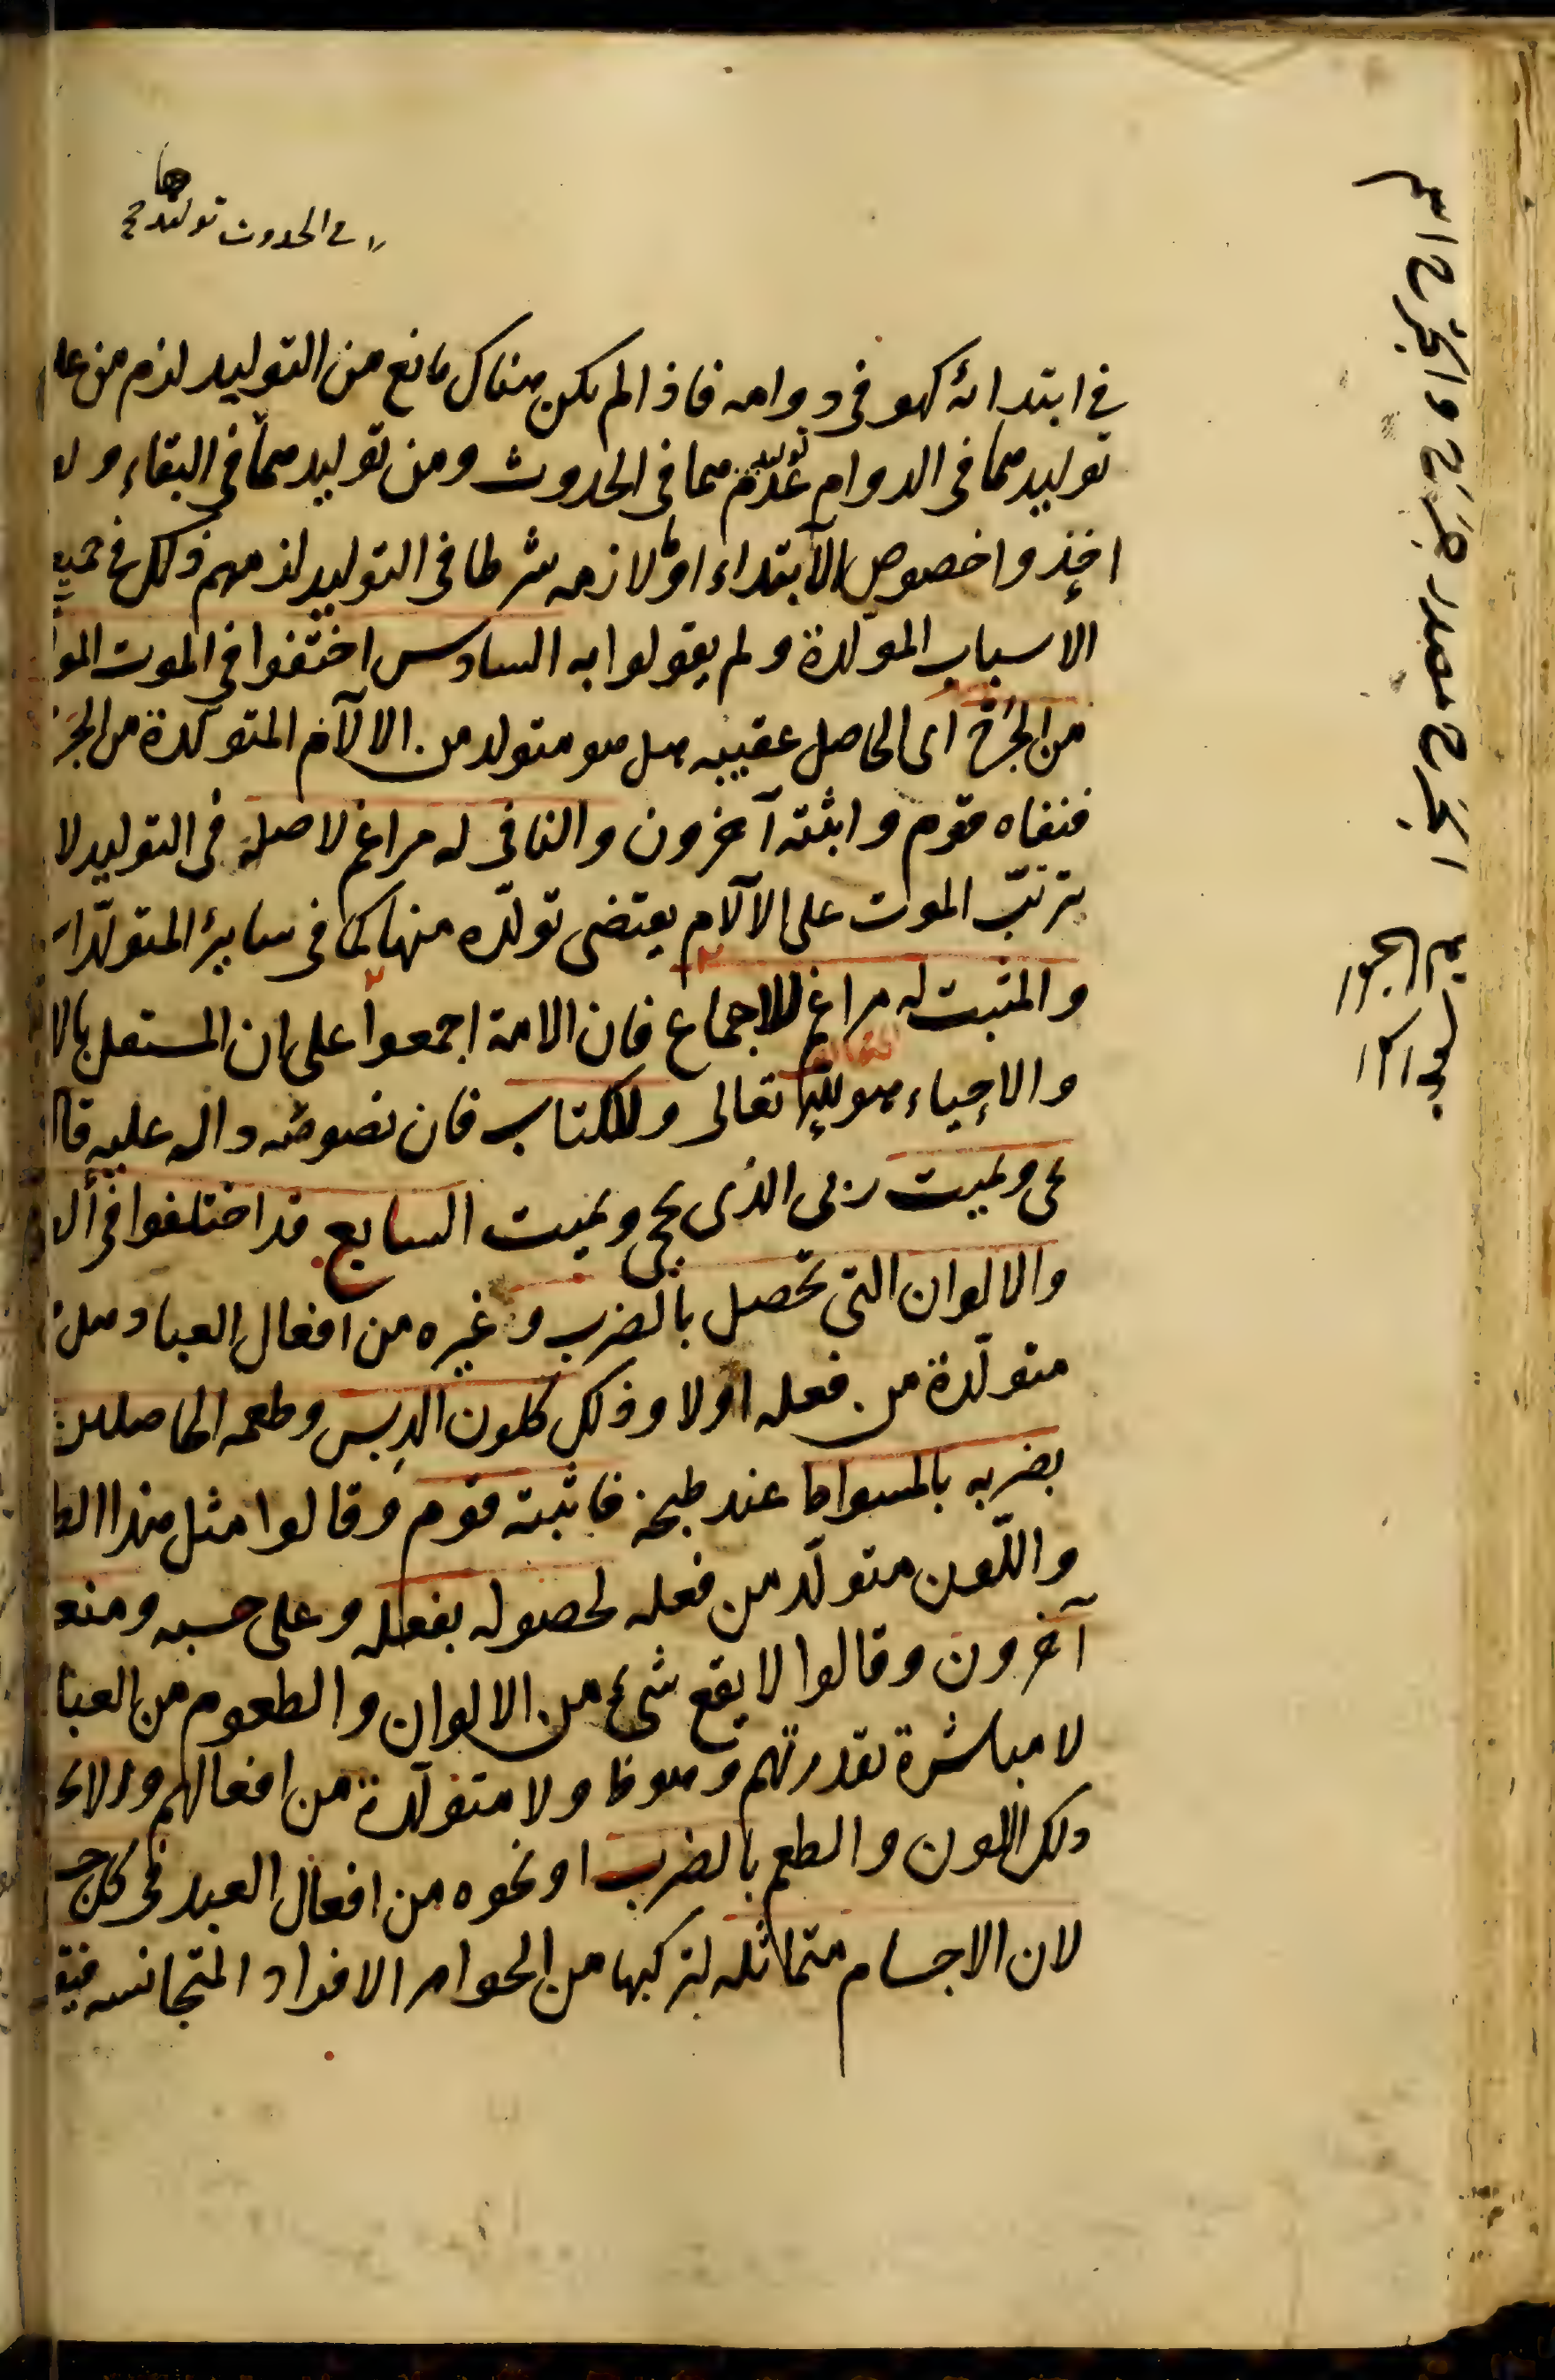 في الحدوث توليدها
في ابتدائه كهو في دوامه فاذا لم يكن هناك مانع من التوليد لزم من عد
توليدهما في الدوام عدم توليدهما في الحدوث ومن توليدهما في البقاء ولو
اخذوا خصوص الابتداء او لازمه شرطا في التوليد لزمهم ذلك في جميع
الاسباب المولدة ولم يقولوا به السادس اختلفوا في الموت المتو
من الجرح اى الحاصل عقيبه هل هو متولد من الآلام المتولدة من الجر
فنفاه قوم واثبته آخرون والنافى له مراغم لاصله في التوليد لا
ترتب الموت على الآلام يقتضى تولده منها كما في سائر المتولدات
والمثبت له مراغم للاجماع فان الامة اجمعوا على ان المستقل بالا
والاحياء هو الله تعالى وللكتاب فان نصوصه دالة عليه قا
يحى ويميت ربى الذى يحيى ويميت السابع قد اختلفوا في ال
والالوان التى تحصل بالضرب وغيره من افعال العباد هل
متولدة من فعله اولا وذلك كلون الدبس وطعمه الحاصلين
بضربه بالمسواط عند طبخه فاثبته قوم وقالوا مثل هذا الط
واللون متولد من فعله لحصوله بفعله وعلى حسبه ومنعه
آخرون وقالوا لا يقع شئ من الالوان والطعوم من العبا
لا مباشرة بقدرتهم وهو ظ ولا متولدة من افعالهم والا
ذلك اللون والطعم بالضرب او نحوه من افعال العبد في كل جسـ
لان الاجسام متماثلة لتركبها من الجواهر الافراد المتجانسة فيقـ
الجرح مصدر جرح والجرح اسم